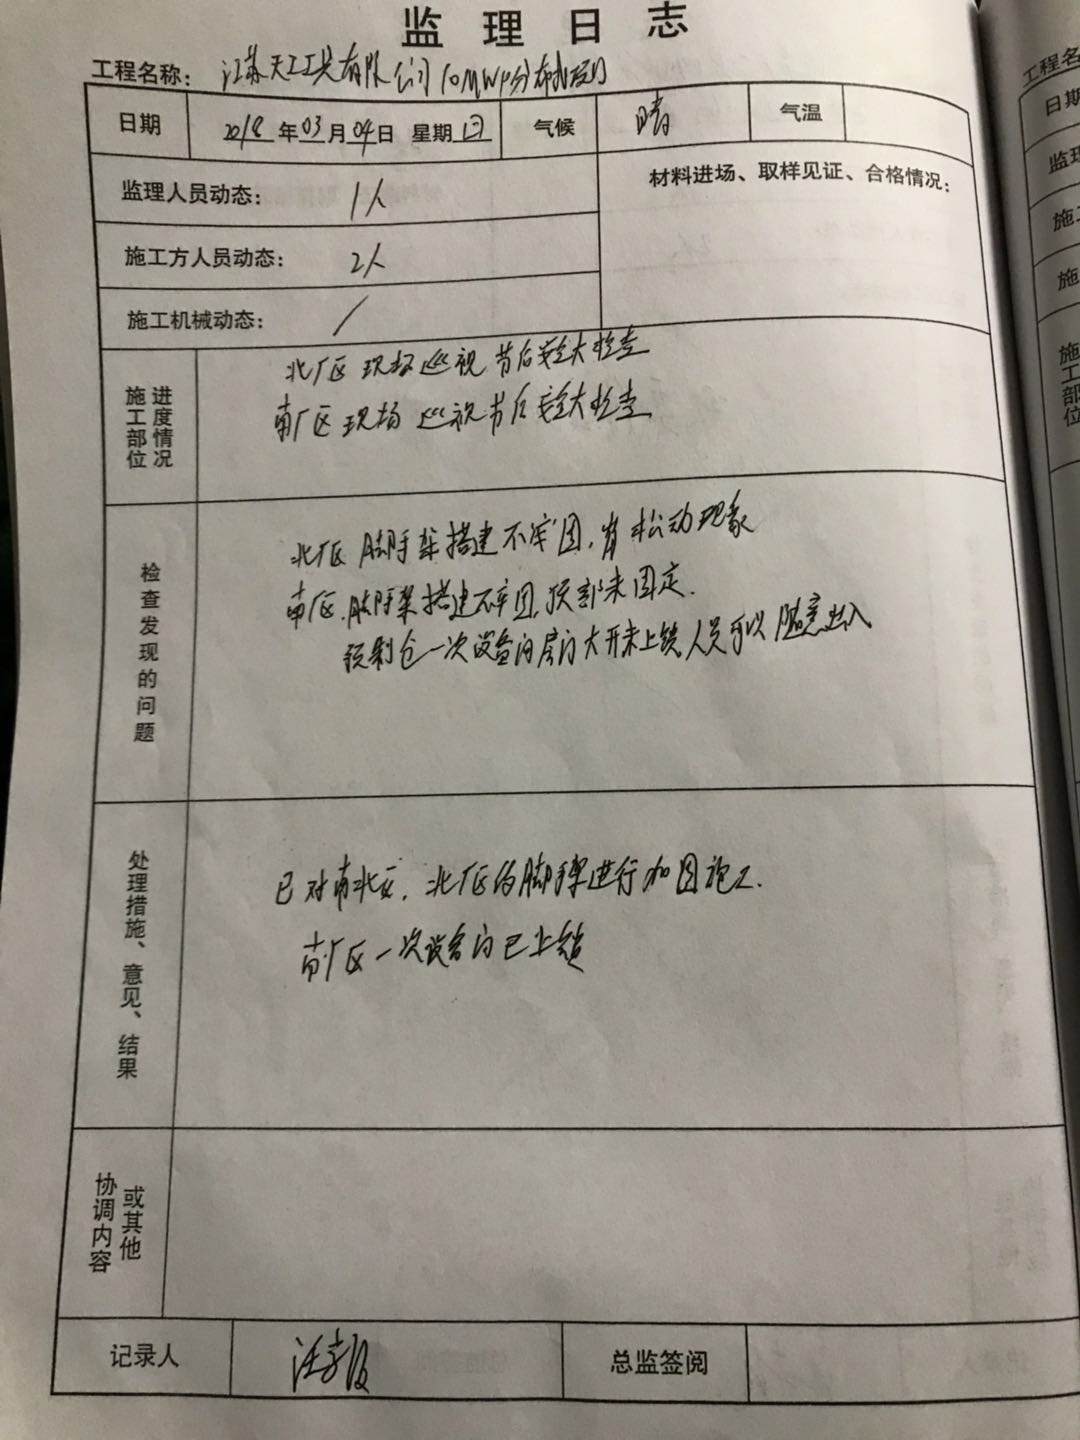 监理日志
工程名称: 江苏天工工具有限公司10MWp分布式项目
日期 2018年03月04日 星期日 气候 晴 气温
监理人员动态: 1人 材料进场、取样见证、合格情况:
施工方人员动态: 2人
施工机械动态: /
施工部位 进度情况
北厂区 现场巡视 节后安全大检查
南厂区现场 巡视节后安全大检查
检查发现的问题
北厂区 脚手架搭建不牢固,有松动现象
南厂区.脚手架搭建不牢固,顶部未固定.
预制仓一次设备的房门大开未上锁 人员可以随意出入
处理措施、意见、结果
已对南北区,北厂区的脚手架进行加固施工.
南厂区一次设备门已上锁
协调内容 或其他
记录人 汪 总监签阅
工程名
日期
监理
施工
施
施工部位